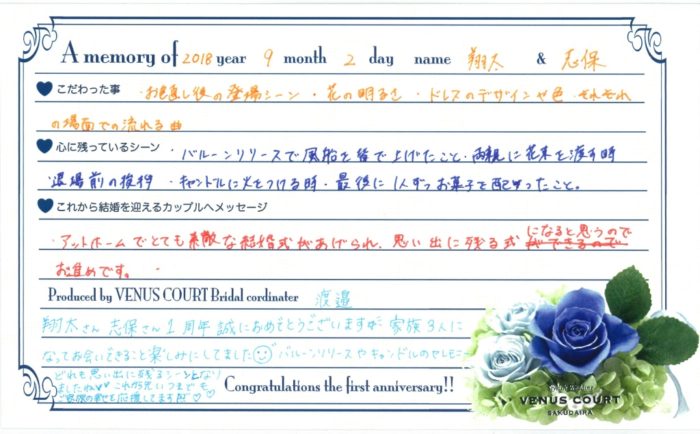 A memory of 2018 year 9 month 2 day name 翔太 & 志保
こだわった事 ・お色直し後の登場シーン ・花の明るさ ・ドレスのデザインや色・それぞれ
の場面での流れる曲
心に残っているシーン ・バルーンリリースで風船を皆で上げたこと・両親に花束を渡す時
退場前の挨拶 ・キャンドルに火をつける時・最後に1人ずつお菓子を配ったこと。
これから結婚を迎えるカップルへメッセージ
・アットホームでとても素敵な結婚式があげられ、思い出に残る式になると思うので
ができるので
お進めです。
Produced by VENUS COURT Bridal cordinater 渡邉
翔太さん 志保さん 1周年 誠におめでとうございます 家族3人に
なってお会いできること楽しみにしてました バルーンリリースやキャンドルのセレモニー
どれも思い出に残るシーンとなり
ましたね これから先いつまでも
ご家族の幸せを応援してます
Congratulations the first anniversary!!
VENUS COURT
SAKUDAIRA